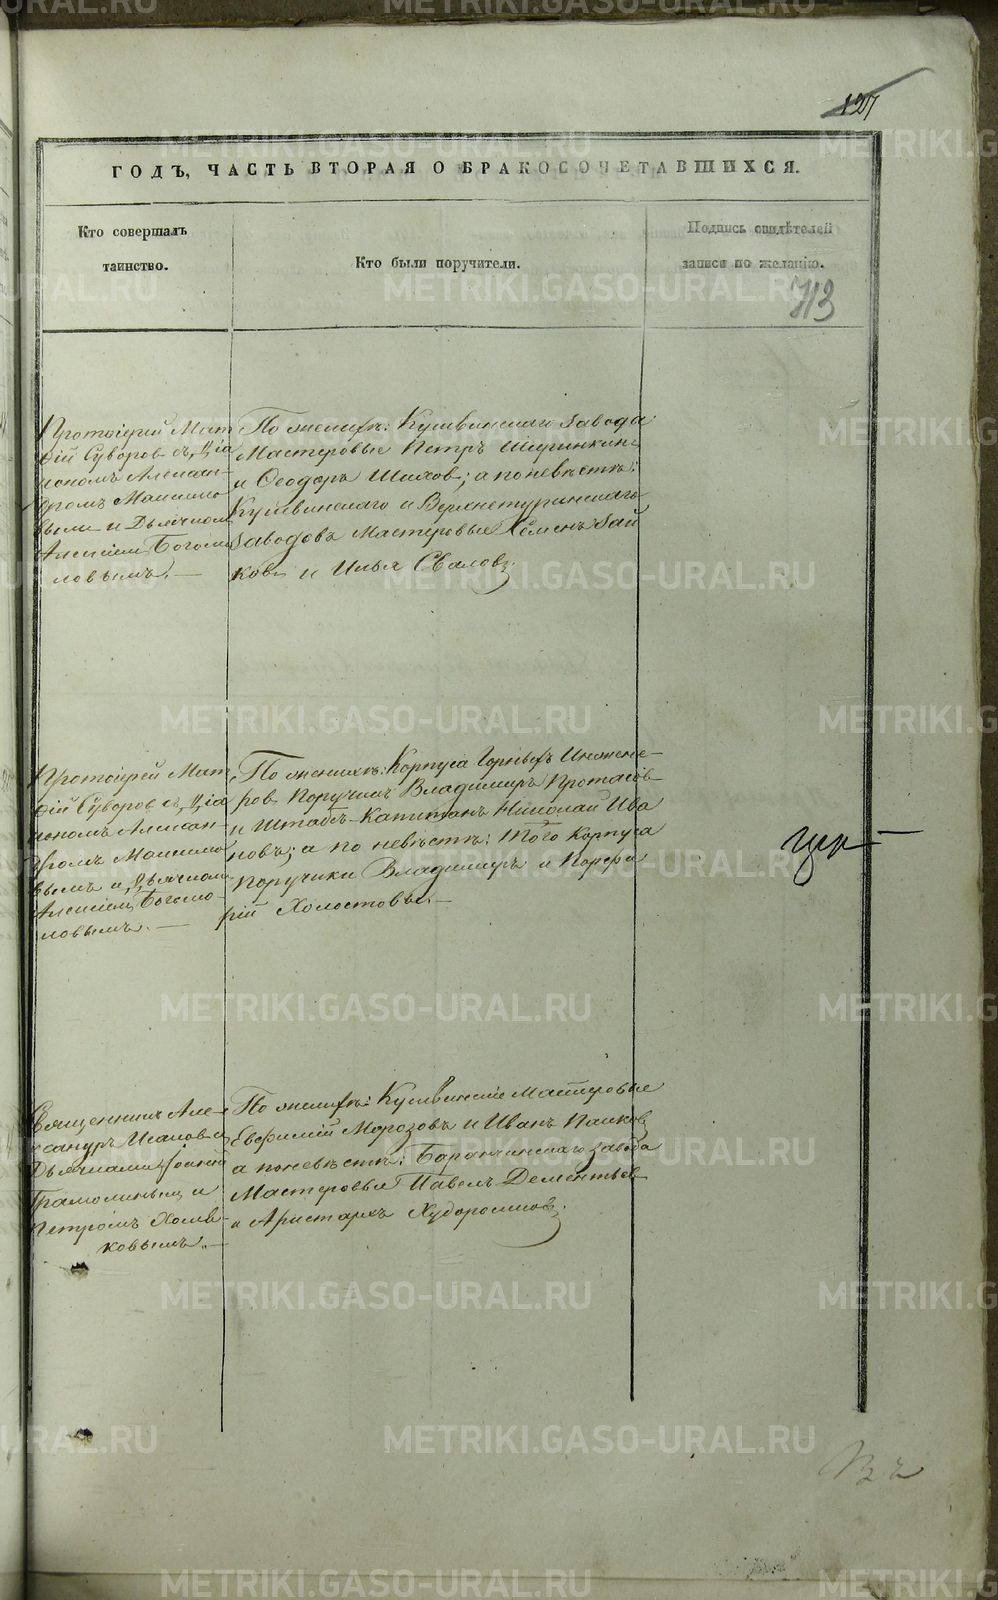 127
ГОДЪ, ЧАСТЬ ВТОРАЯ О БРАКОСОЧЕТАВШИХСЯ.
Кто совершалъ
таинство.
Кто были поручители.
Подпись свидѣтелей
записи по желанію.
713
Протоіерей Мат
ѳій Суворов съ Діа
кономъ Алексан-
дромъ Максимо
вым и Дьячкомъ
Алексіем Богомо
ловымъ.—
По женихѣ: Кушвинскаго завода
Мастеровые Петръ Ширинкинъ
и Ѳеодоръ Шихов; а по невѣстѣ:
Кушвинскаго и Верхнетуринскаго
Заводовъ Мастеровые Семенъ Зай
ковъ и Илья Сваловъ.
Протоіерей Мат
ѳій Суворов съ Діа
кономъ Алексан-
дромъ Максимо
вымъ и Дьячкомъ
Алексіем Богомо-
ловымъ.—
По женихѣ: Корпуса Горныхъ Инжене-
ров Поручикъ Владимиръ Протасов
и Штабс-Капитанъ Николай Ива
новъ; а по невѣстѣ: того Корпуса
Поручики Владимиръ и Порфи
рій Холостовы.—
Священникъ Але-
ксандръ Исаков с
Дьячками Іоанном
Грамолиным и
Петромъ Хомя-
ковымъ.—
По женихѣ: Кушвинскіе Мастеровые
Евфимій Морозовъ и Иванъ Панковъ
а по невѣстѣ: Баранчинскаго завода
Мастеровые Павелъ Дементьев
и Аристархъ Худорожков.
METRIKI.GASO-URAL.RU